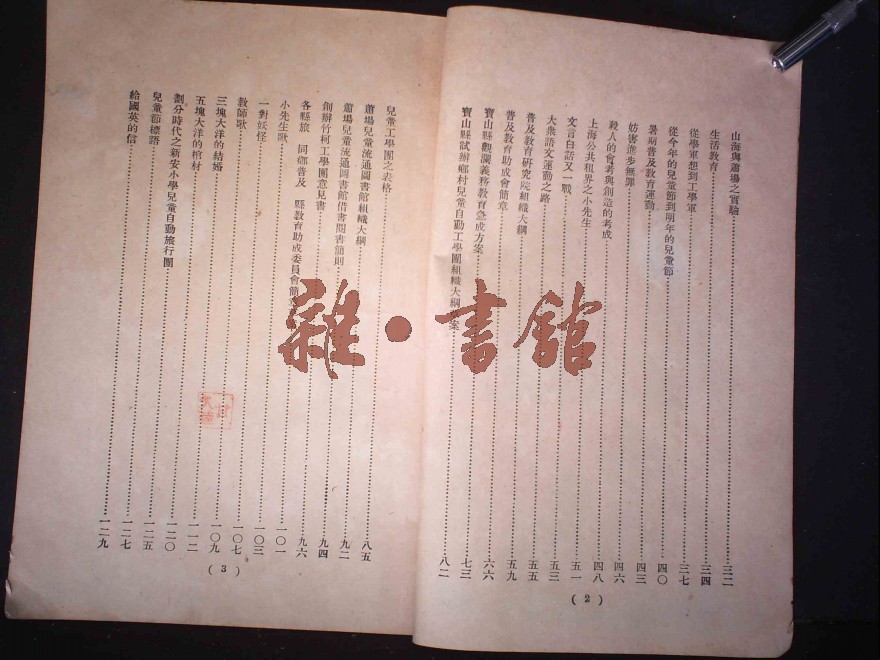 山海與蕭場之實驗……三二
生活教育……三四
從學軍想到工學軍……三七
從今年的兒童節到明年的兒童節……四〇
暑期普及教育運動……四三
妨害進步無罪……四六
殺人的會考與創造的考成……四八
上海公共租界之小先生……五一
文言白話又一戰……五三
大衆語文運動之路……五五
普及教育研究院組織大綱……五九
普及教育助成會簡章……六六
寶山縣觀瀾義務教育急成方案……七三
寶山縣試辦鄉村兒童自動工學團組織大綱 案……八二
(2)
兒童工學團之表格……八五
蕭場兒童流通圖書館組織大綱……九二
蕭場兒童流通圖書館借書閱書簡則……九四
創辦竹柯工學團意見書……九六
各縣旅 同鄉普及 縣教育助成委員會簡……一〇一
小先生歌……一〇三
一對妖怪……一〇七
教師歌……一〇九
三塊大洋的結婚……一一二
五塊大洋的棺材……一二〇
劃分時代之新安小學兒童自動旅行團……一二五
兒童節標語……一二七
給國英的信……一二九
(3)
雜·書舘